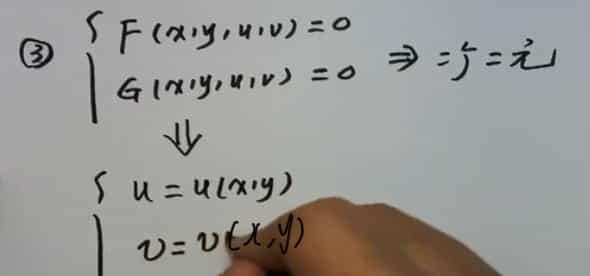 ③ { F(x,y,u,v)=0
G(x,y,u,v)=0 ⇒ 二个二元
⇓
{ u=u(x,y)
v=v(x,y)